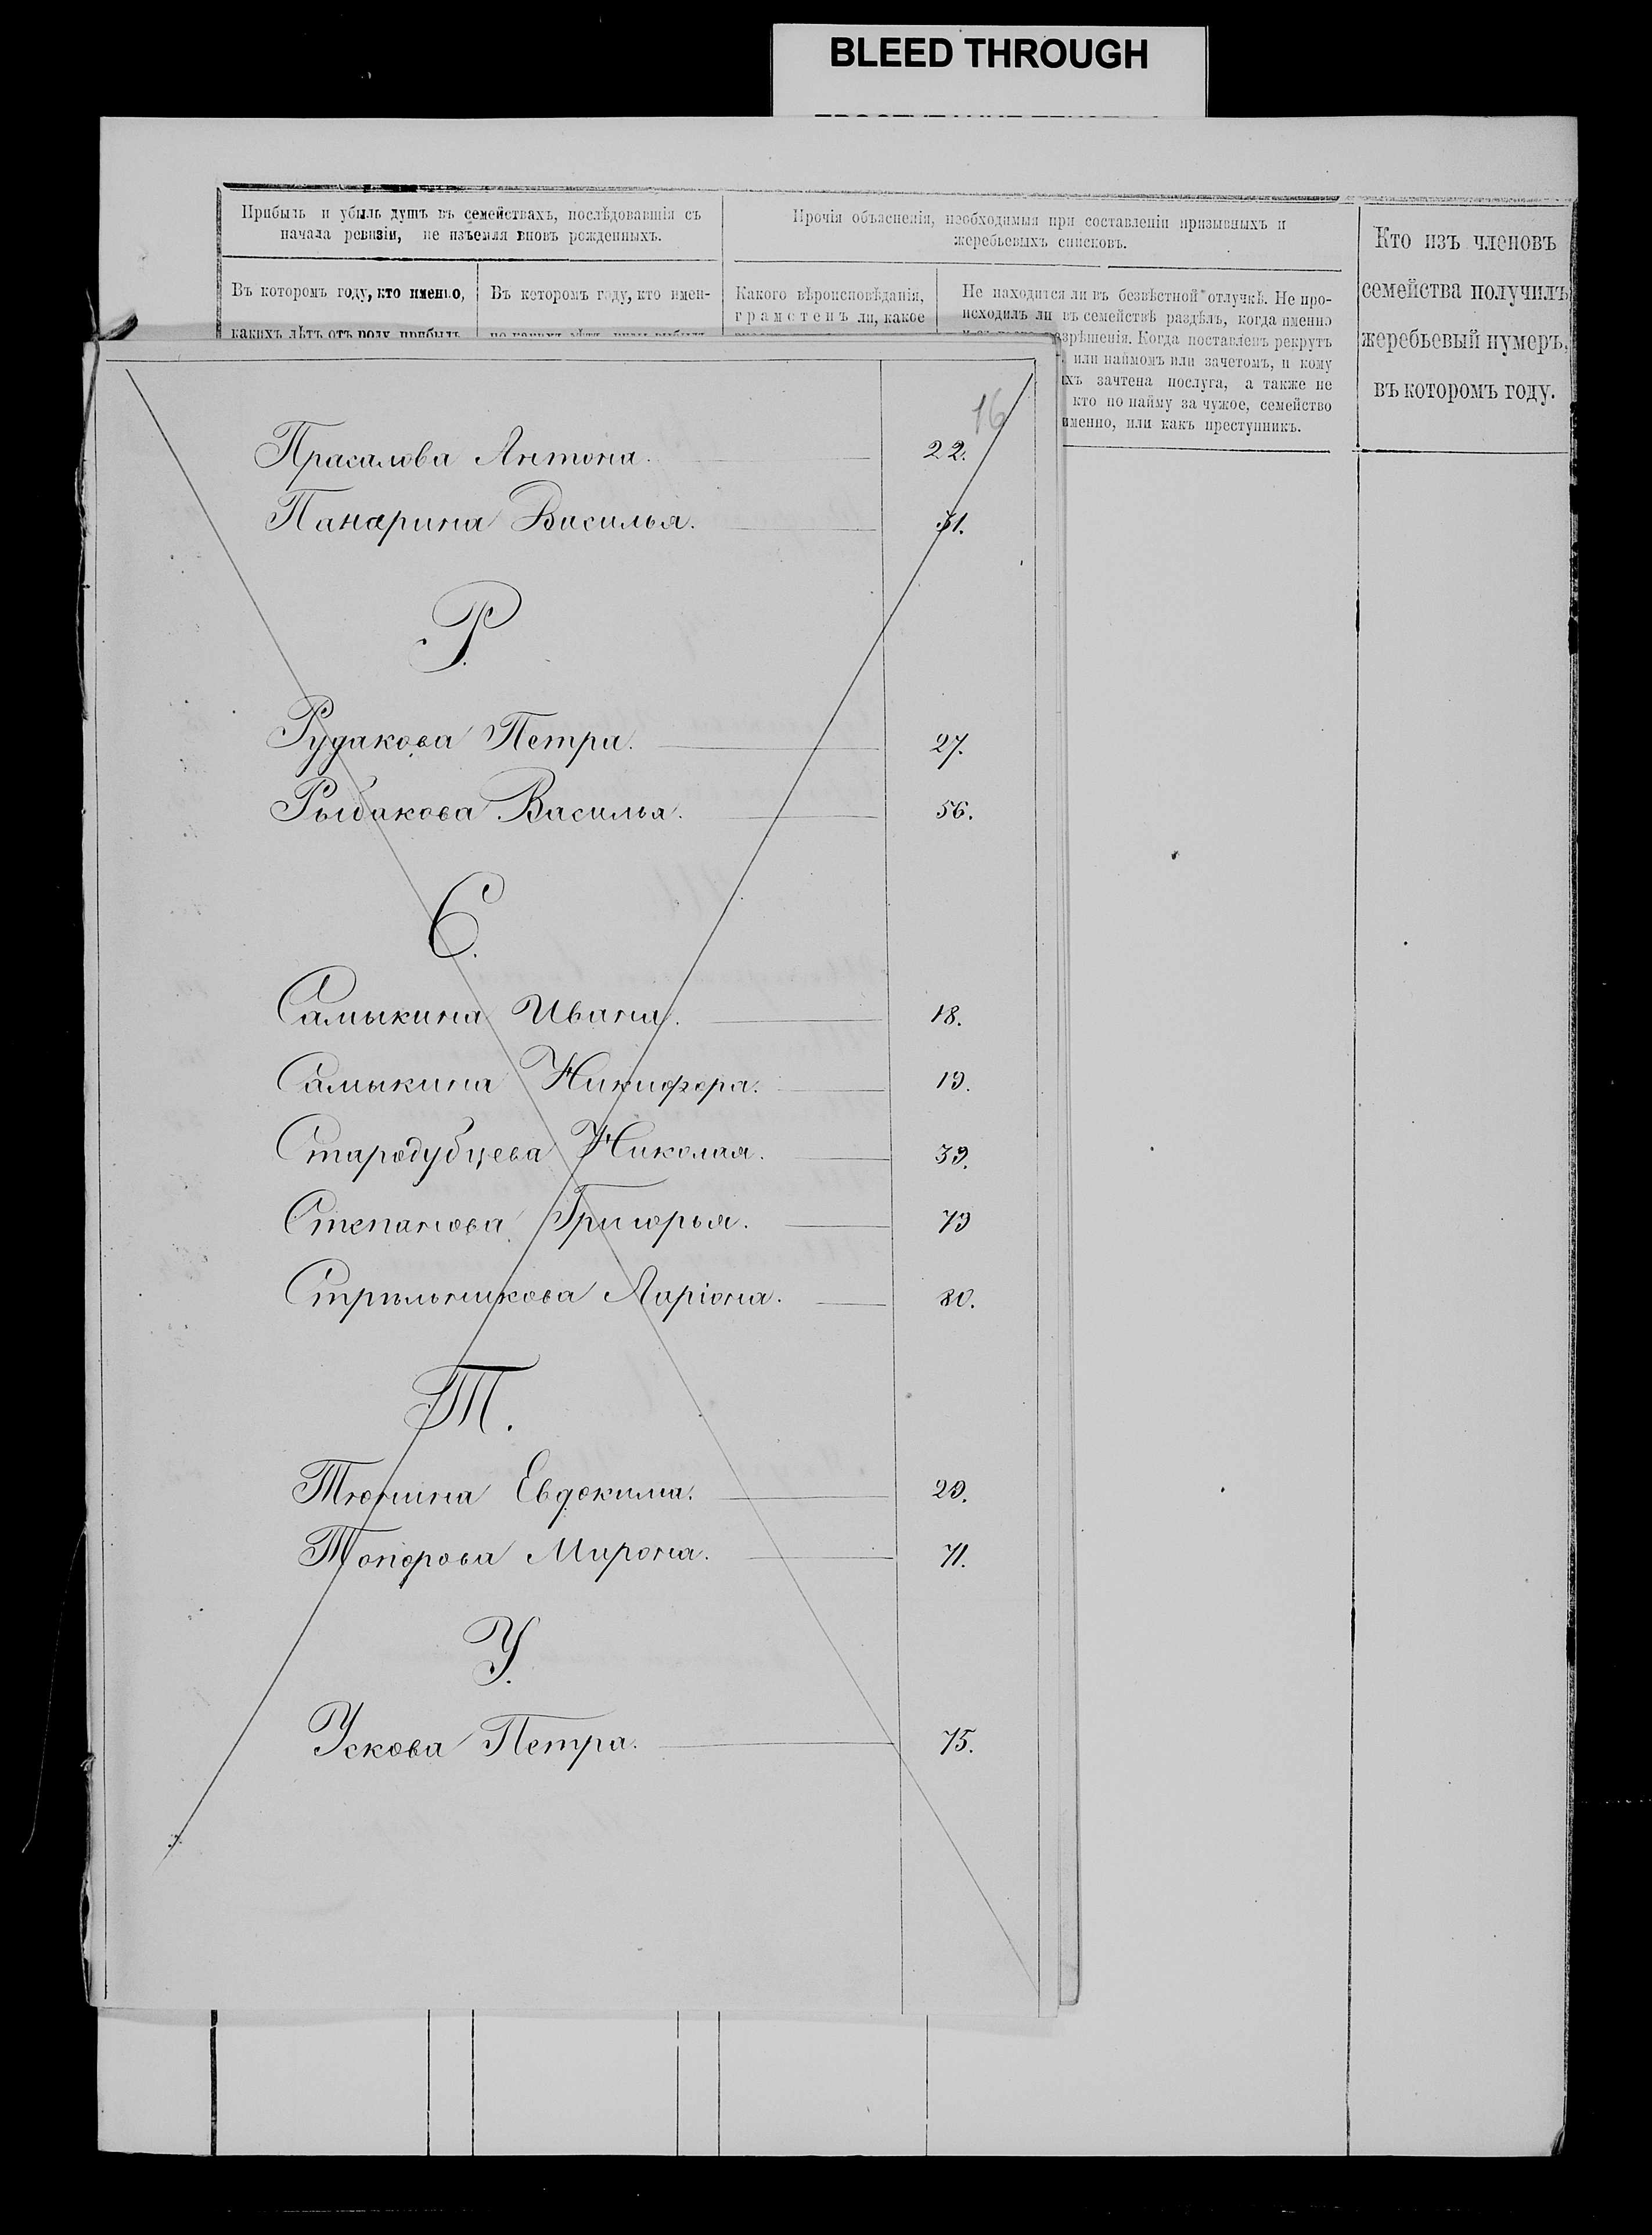 BLEED THROUGH
Прибыль и убыль душъ въ семействахъ, послѣдовавшія съ
начала ревизіи, не изъемля вновь рожденныхъ.
Прочія объясненія, необходимыя при составленіи призывныхъ и
жеребьевыхъ списковъ.
Кто изъ членовъ
семейства получилъ
жеребьевый нумеръ,
въ которомъ году.
Въ которомъ году, кто именно,
какихъ лѣтъ отъ роду прибылъ
Въ которомъ году, кто имен-
Какого вѣроисповѣданія,
грамотенъ ли, какое
Не находится ли въ безвѣстной отлучкѣ. Не про-
исходилъ ли въ семействѣ раздѣлъ, когда именно
азрѣшенія. Когда поставленъ рекрутъ
или наймомъ или зачетомъ, и кому
ихъ зачтена послуга, а также не
кто по найму за чужое, семейство
именно, или какъ преступникъ.
16
Прасалова Антона. 22.
Панарина Василья. 51.
Р.
Рудакова Петра. 27.
Рыбакова Василья. 56.
С.
Самыкина Ивана. 18.
Самыкина Никифора. 19.
Стародубцева Николая. 39.
Степанова Григорья. 79
Стрѣльникова Ларіона. 80.
Т.
Тюнина Евдокима. 29.
Топорова Мирона. 71.
У.
Ускова Петра. 75.